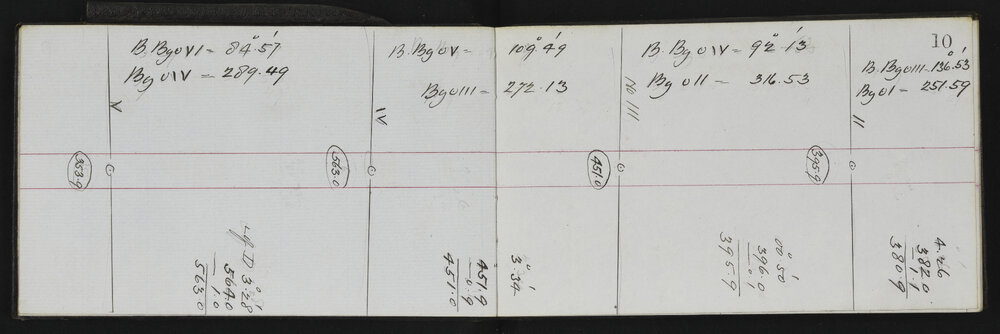 B. Bg ⊙ VI = 84° 51'
Bg ⊙ IV = 289° 49
V
353.9
Lg D 3° 28'
564.0
1.0
563.0
B. Bg ⊙ V = 109° 49'
Bg ⊙ III = 272° 13
IV
563.0
451.9
0.9
451.0
3° 34'
B. Bg ⊙ IV = 92° 13'
Bg ⊙ II = 316.53
No III
451.0
00° 50'
396.0
0.1
395.9
10
B. Bg ⊙ III = 136° 53'
Bg ⊙ I = 251.59
II
395.9
4.26
382.0
1.1
380.9